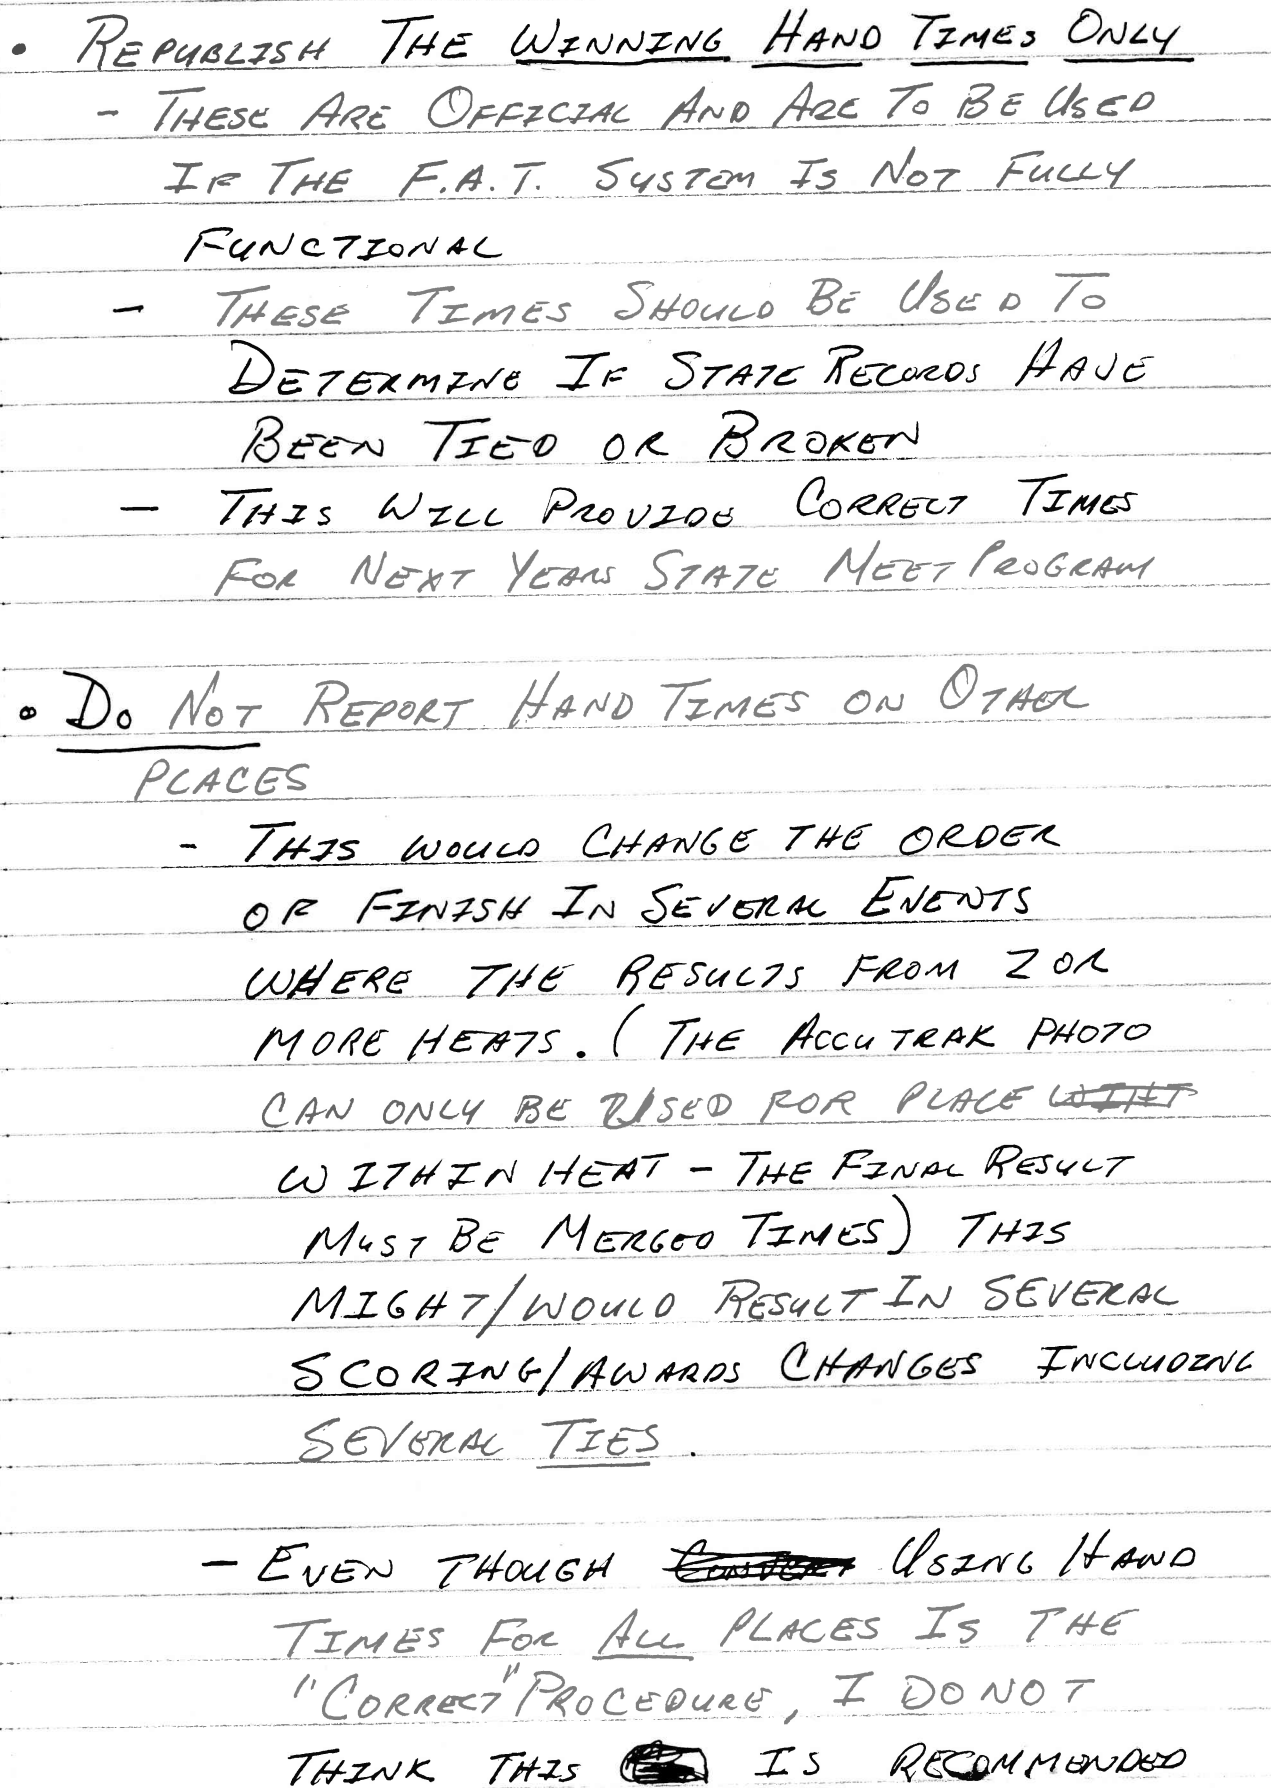 • REPUBLISH THE WINNING HAND TIMES ONLY
- THESE ARE OFFICIAL AND ARE TO BE USED
IF THE F.A.T. SYSTEM IS NOT FULLY
FUNCTIONAL
- THESE TIMES SHOULD BE USED TO
DETERMINE IF STATE RECORDS HAVE
BEEN TIED OR BROKEN
- THIS WILL PROVIDE CORRECT TIMES
FOR NEXT YEARS STATE MEET PROGRAM
• DO NOT REPORT HAND TIMES ON OTHER
PLACES
- THIS WOULD CHANGE THE ORDER
OF FINISH IN SEVERAL EVENTS
WHERE THE RESULTS FROM 2 OR
MORE HEATS. (THE ACCUTRAK PHOTO
CAN ONLY BE USED FOR PLACE WITHT
WITHIN HEAT - THE FINAL RESULT
MUST BE MERGED TIMES) THIS
MIGHT/WOULD RESULT IN SEVERAL
SCORING/AWARDS CHANGES INCLUDING
SEVERAL TIES.
- EVEN THOUGH USING HAND
TIMES FOR ALL PLACES IS THE
"CORRECT" PROCEDURE, I DO NOT
THINK THIS IS RECOMMENDED